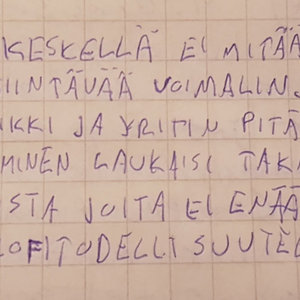 KESKELLÄ EI MITÄÄ
IINTÄVÄÄ VOIMALIN
IKKI JA YRITIN PITÄ
MINEN LAUKAISI TAK
ISTA JOITA EI ENÄÄ
LOFITODELLISUUTEL